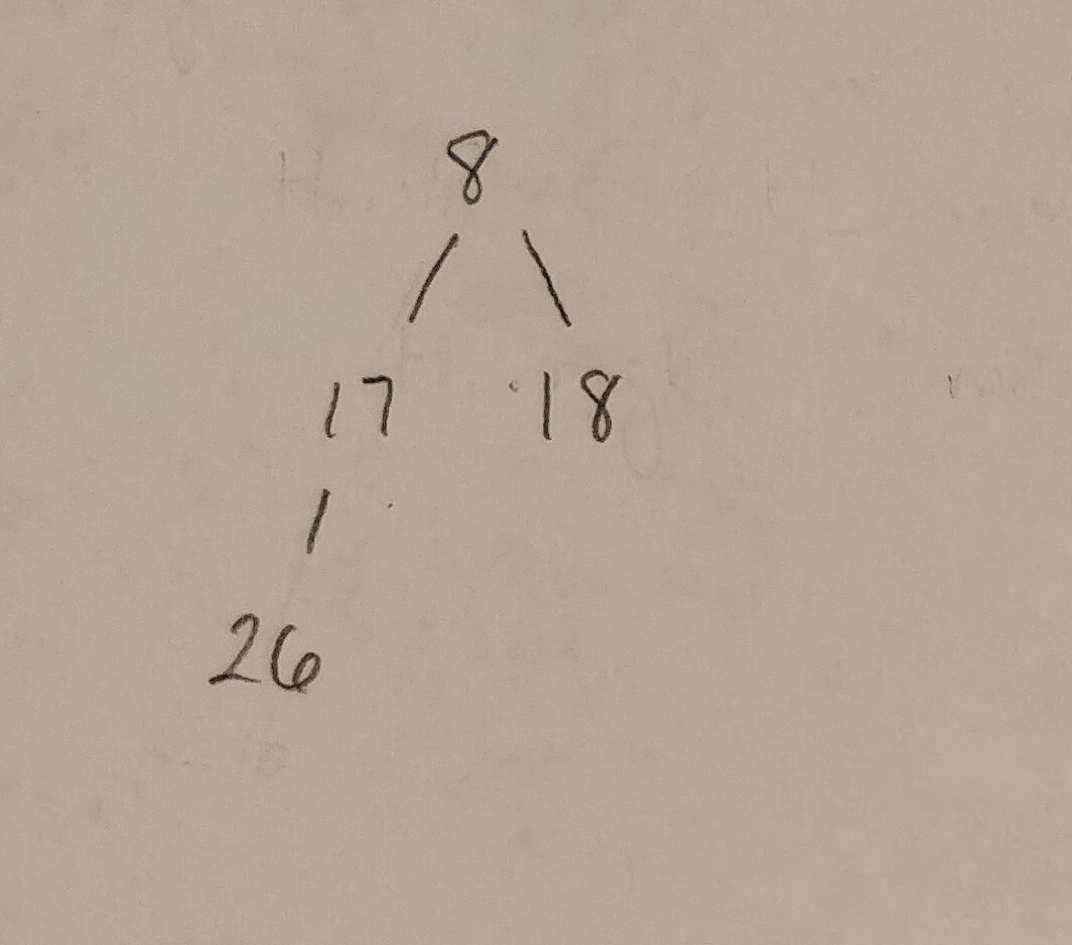 8
17 18
26